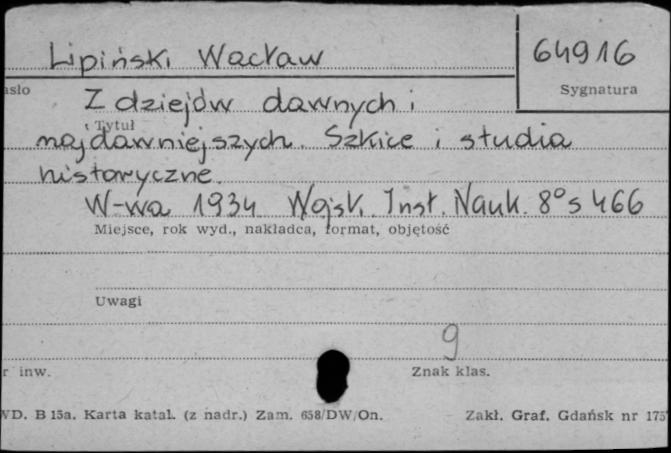 Lipiński Wacław
64916
asło
Sygnatura
Z dziejów dawnych i
Tytuł
najdawniejszych. Szkice i studia
historyczne.
W-wa 1934 Wojsk. Inst. Nauk. 8° s 466
Miejsce, rok wyd., nakładca, format, objętość
Uwagi
9
r inw.
Znak klas.
WD. B 15a. Karta katal. (z nadr.) Zam. 658/DW/On.
Zakł. Graf. Gdańsk nr 175